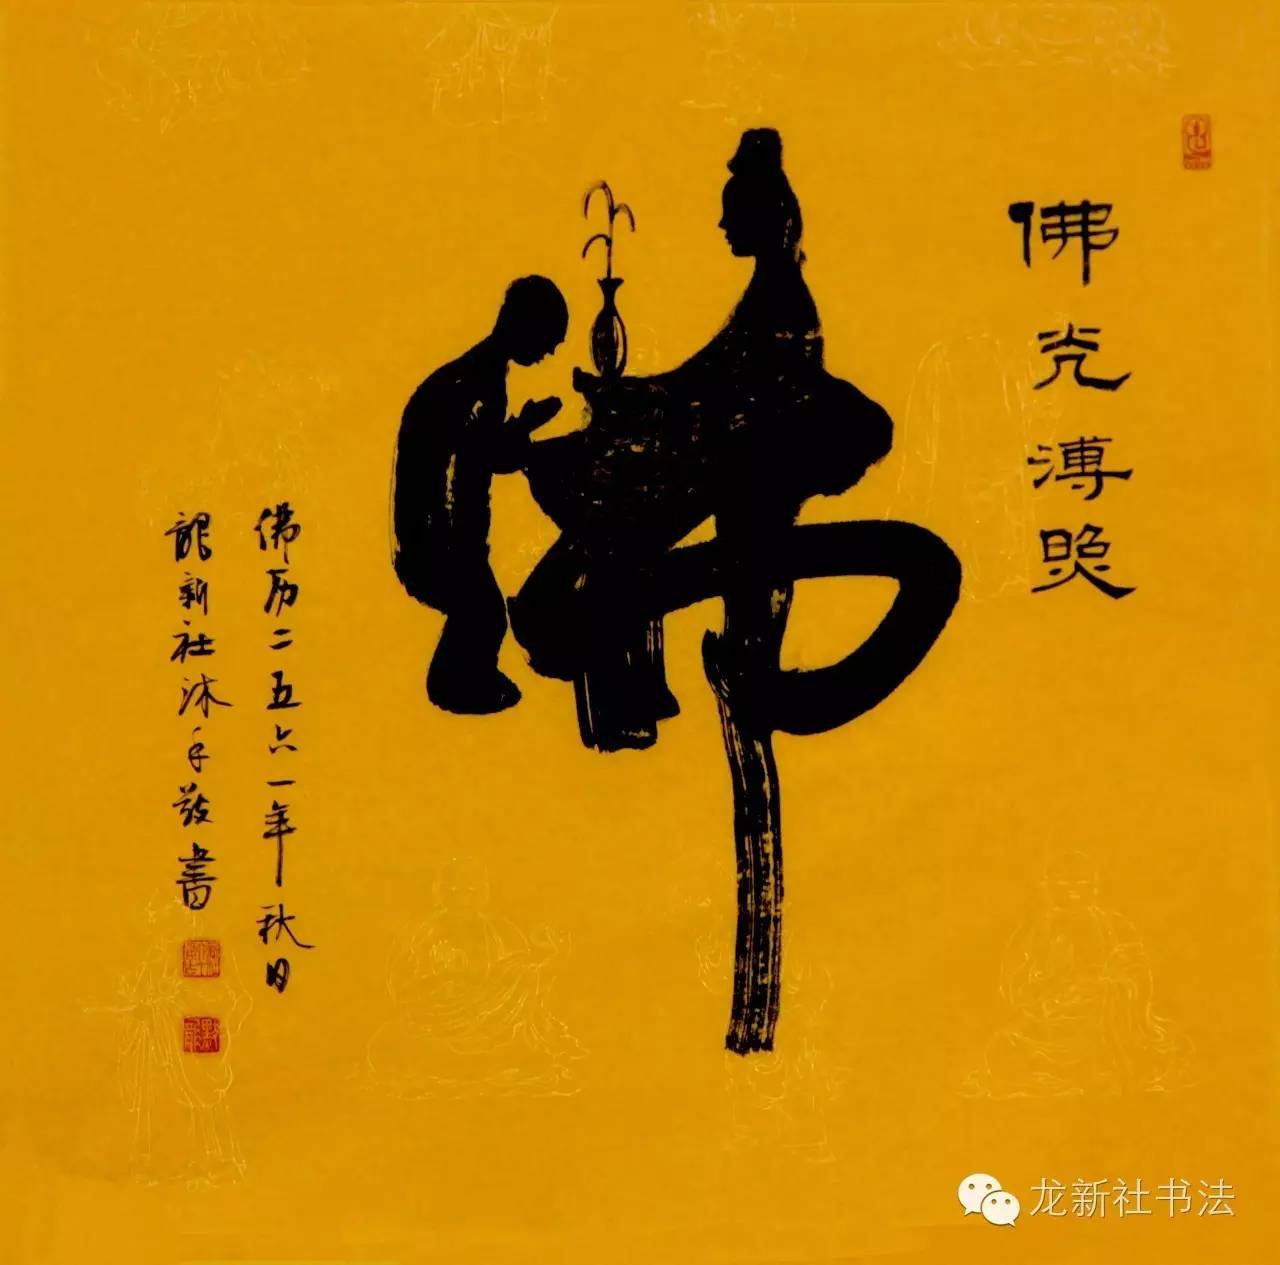 佛光溥照
佛
佛历二五六一年秋月
龍新社沐手敬書
龙新社书法